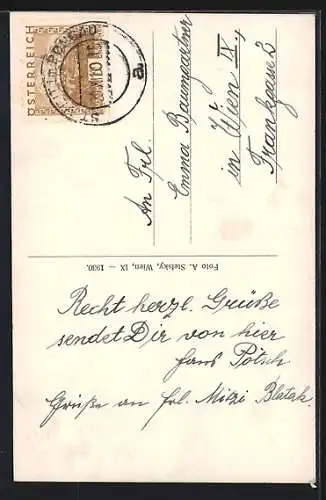 ÖSTERREICH
a
An Frl.
Emma Baumgartner
in Wien IX,
Frankgasse 2
Foto A. Stefsky, Wien, IX — 1930.
Recht herzl. Grüße
sendet Dir von hier
Hans Pötsch
Grüße an frl. Mitzi Blatak.